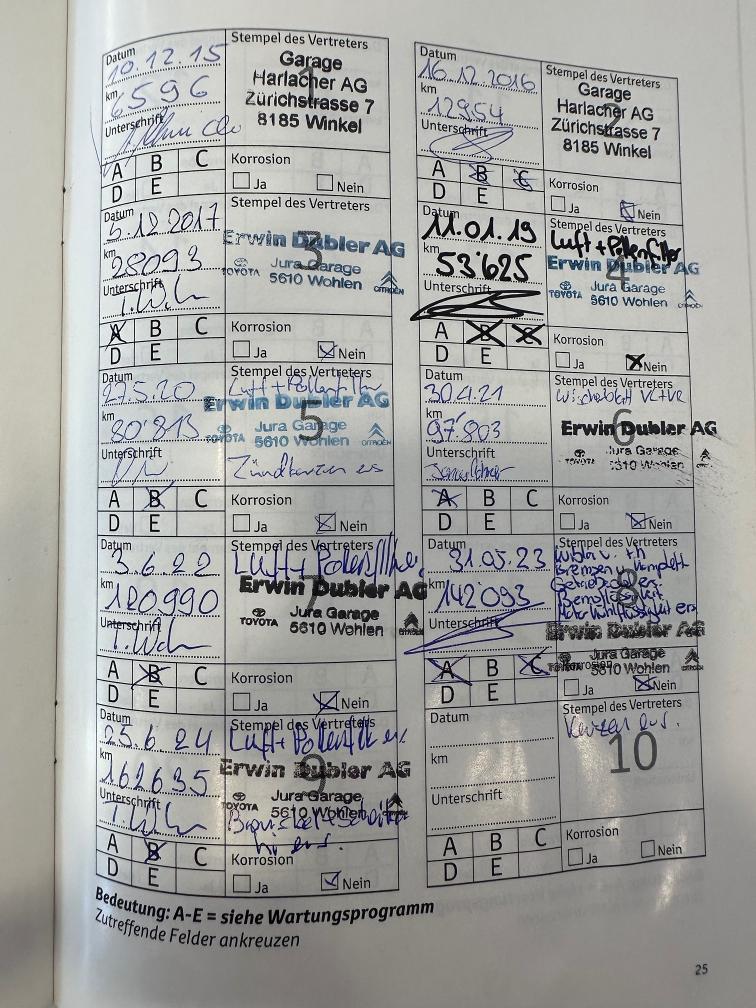 Datum
10.12.15
km
6596
Unterschrift
Stempel des Vertreters
Garage
Harlacher AG
Zürichstrasse 7
8185 Winkel
1
A B C
D E
Korrosion
Ja Nein
Datum
16.12.2016
km
12954
Unterschrift
Stempel des Vertreters
Garage
Harlacher AG
Zürichstrasse 7
8185 Winkel
2
A B C
D E
Korrosion
Ja Nein
Datum
5.12.2017
km
28093
Unterschrift
Stempel des Vertreters
Erwin Dubler AG
3
Jura Garage
TOYOTA 5610 Wohlen CITROËN
A B C
D E
Korrosion
Ja Nein
Datum
11.01.19
km
53'625
Unterschrift
Stempel des Vertreters
Luft + Pollenfilter
Erwin Dubler AG
4
Jura Garage
TOYOTA 5610 Wohlen CITROËN
A B C
D E
Korrosion
Ja Nein
Datum
27.5.20
km
80'813
Unterschrift
Stempel des Vertreters
Luft + Pollenfilter
Erwin Dubler AG
5
Jura Garage
TOYOTA 5610 Wohlen CITROËN
Zündkerzen es
A B C
D E
Korrosion
Ja Nein
Datum
30.4.21
km
97'803
Unterschrift
Stempel des Vertreters
Wischblatt VL+VR
Erwin Dubler AG
6
Jura Garage
TOYOTA 5610 Wohlen
A B C
D E
Korrosion
Ja Nein
Datum
3.6.22
km
120990
Unterschrift
Stempel des Vertreters
Luft + Pollenfilter
Erwin Dubler AG
7
Jura Garage
TOYOTA 5610 Wohlen CITROËN
A B C
D E
Korrosion
Ja Nein
Datum
31.05.23
km
142'093
Unterschrift
Stempel des Vertreters
Bremsen komplett
8
Erwin Dubler AG
Jura Garage
TOYOTA 5610 Wohlen
A B C
D E
Korrosion
Ja Nein
Datum
25.6.24
km
162635
Unterschrift
Stempel des Vertreters
Luft + Pollenfilter
Erwin Dubler AG
9
Jura Garage
TOYOTA 5610 Wohlen CITROËN
A B C
D E
Korrosion
Ja Nein
Datum
km
Unterschrift
Stempel des Vertreters
10
A B C
D E
Korrosion
Ja Nein
Bedeutung: A-E = siehe Wartungsprogramm
Zutreffende Felder ankreuzen
25